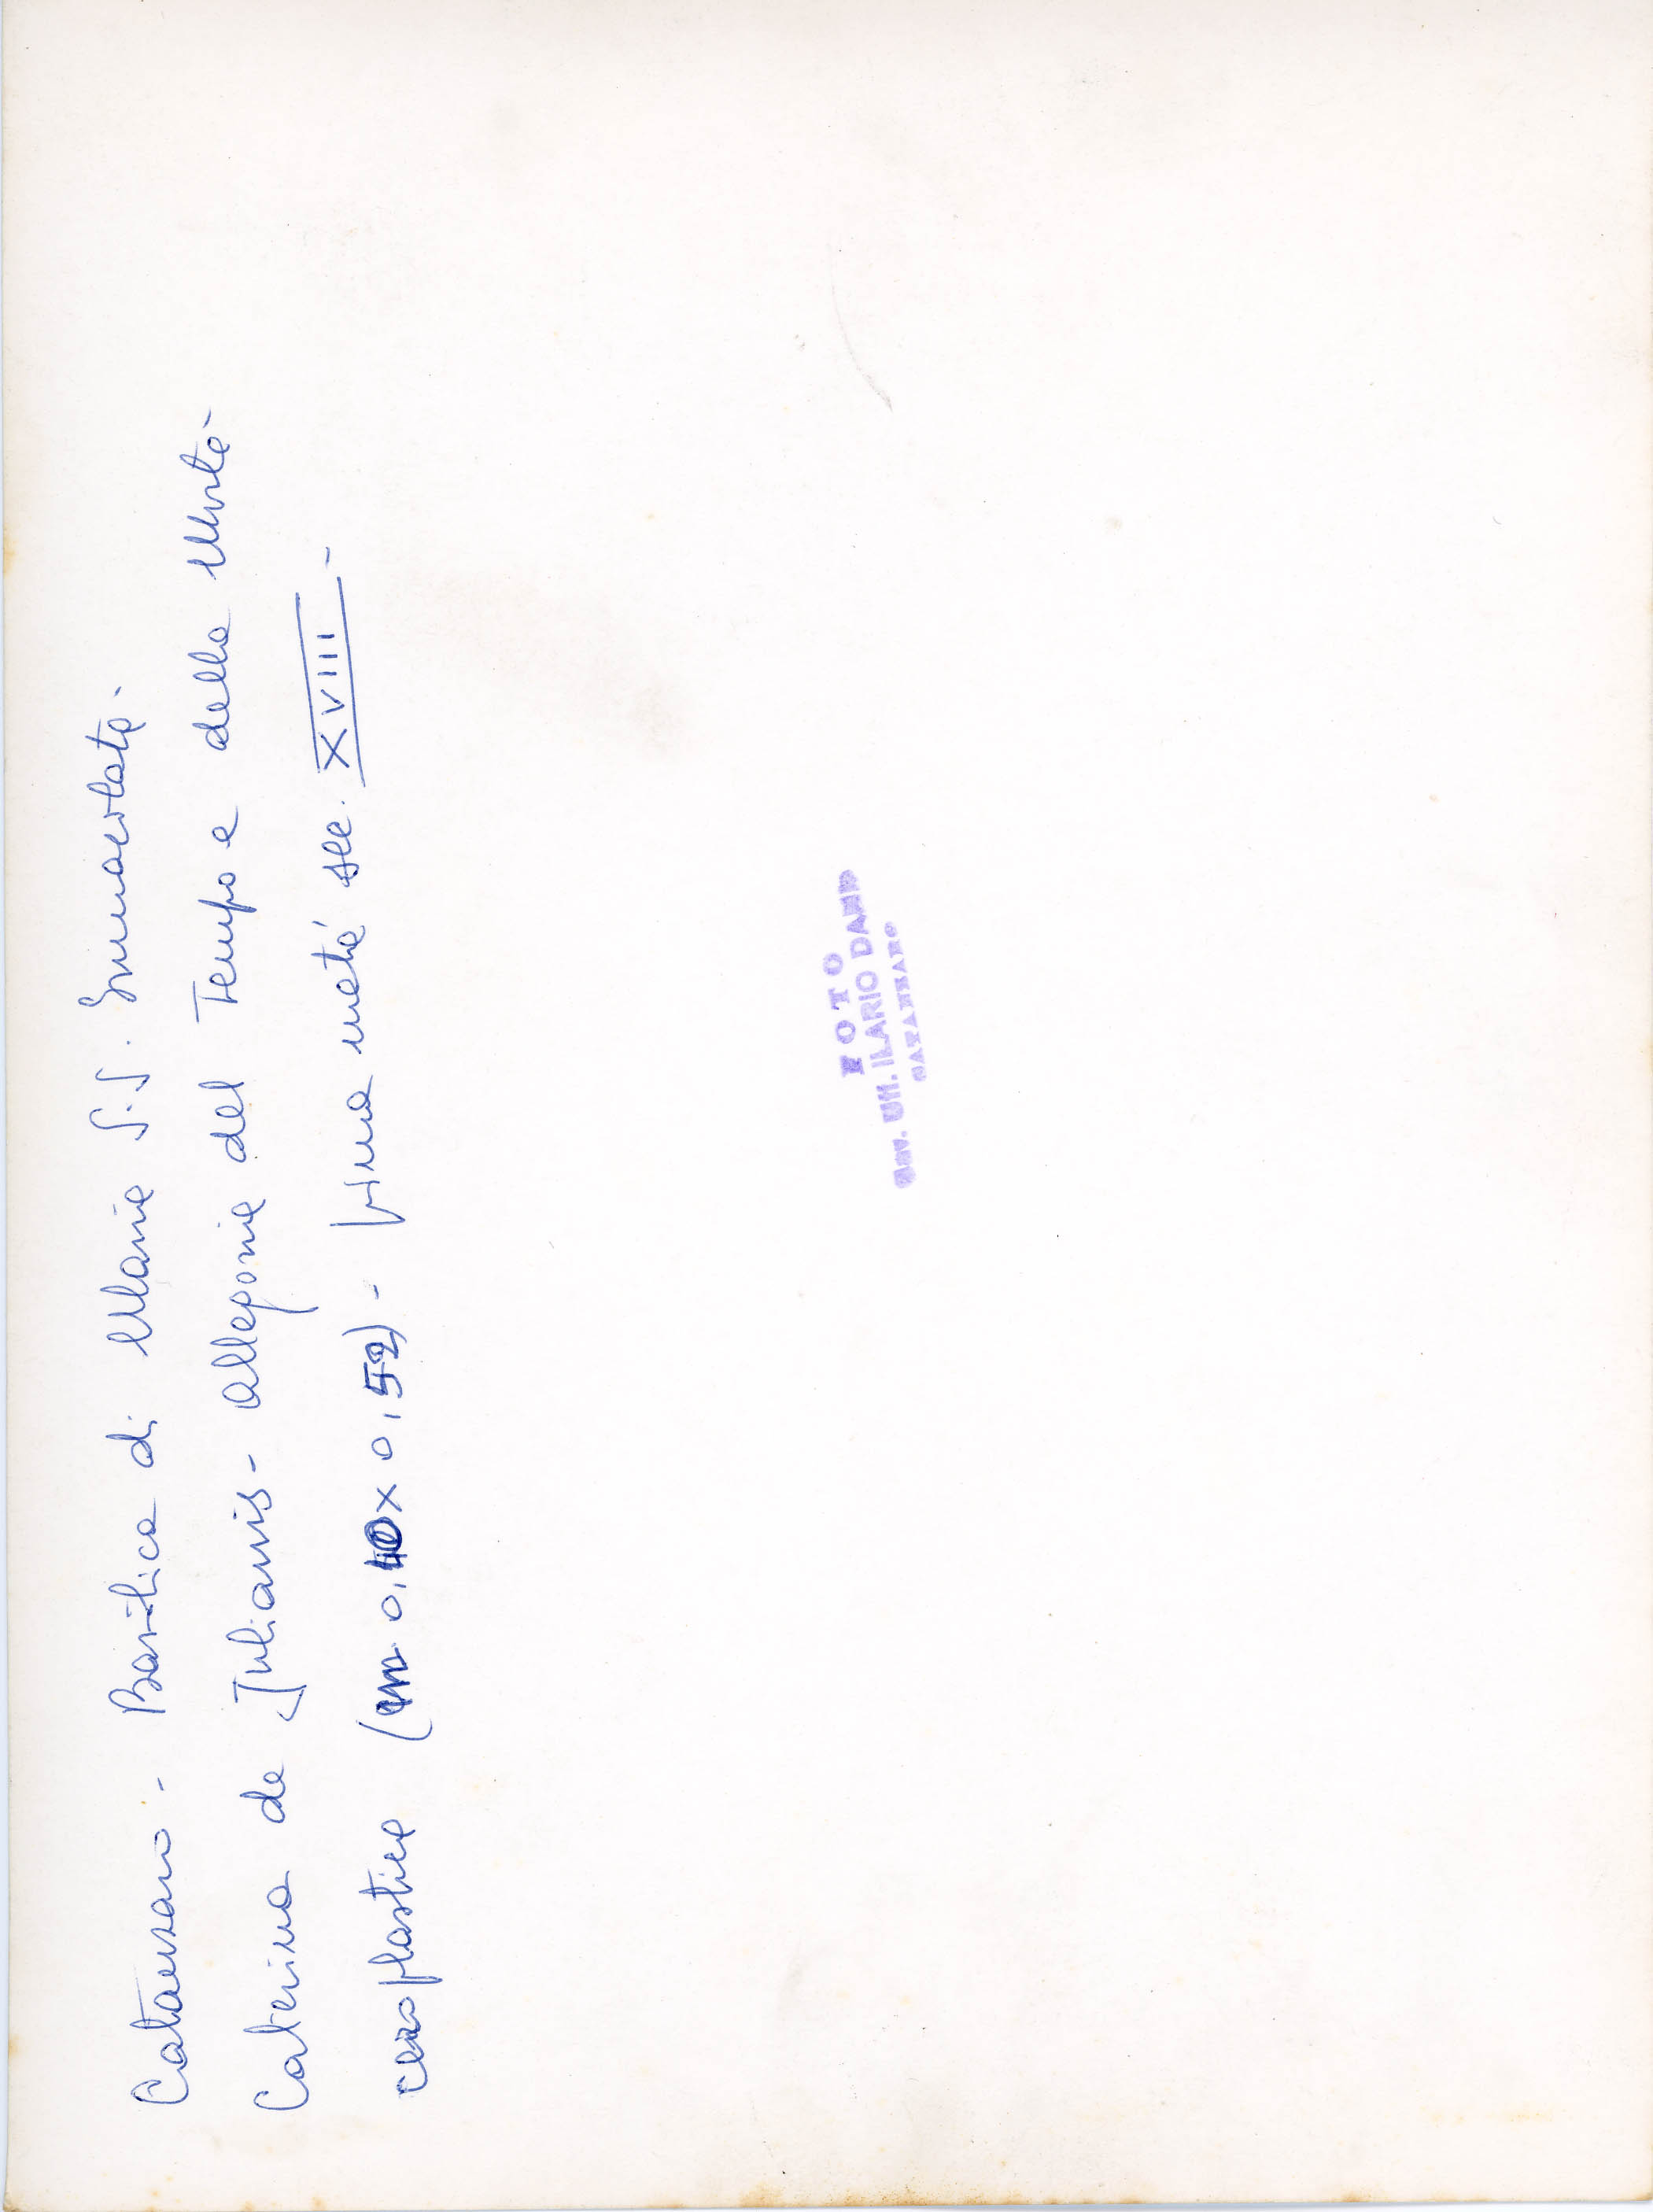 Catanzaro - Basilica di Maria S.S. Immacolata -
Caterina de Julianis - allegoria del Tempo e della Morte -
ceroplastica (m 0,40 x 0,52) - prima metà sec. XVIII -
FOTO
Cav. Uff. ILARIO
CATANZARO